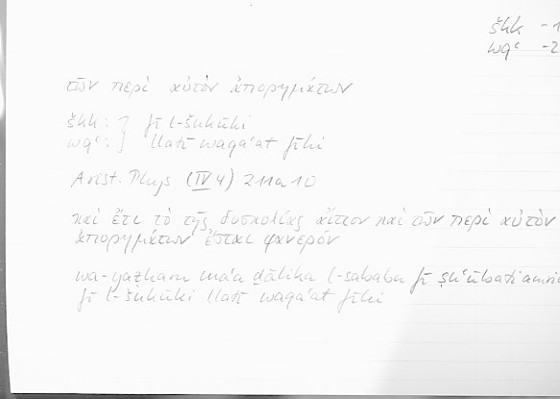 škk - 1
wqʿ - 2
τῶν περὶ αὐτὸν ἀπορημάτων
škk : } fī l-šukūki
wqʿ : } llatī waqaʿat fīhi
Arist. Phys (IV 4) 211a10
καὶ ἔτι τὸ τῆς δυσκολίας αἴτιον καὶ τῶν περὶ αὐτὸν
ἀπορημάτων ἔσται φανερόν
wa-yaẓharu maʿa ḏālika l-sababu fī ṣuʿūbati
fī l-šukūki llatī waqaʿat fīhi